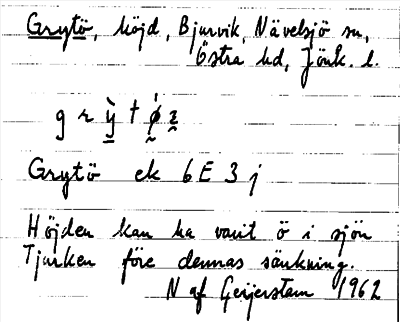 Grytö, höjd, Bjurvik, Nävelsjö sn,
Östra hd, Jönk. l.
g r ỳ̠ t ǿ̰ z̰
Grytö ek 6E 3j
Höjden kan ha varit ö i sjön
Tjurken före dennas sänkning.
N af Geijerstam 1962